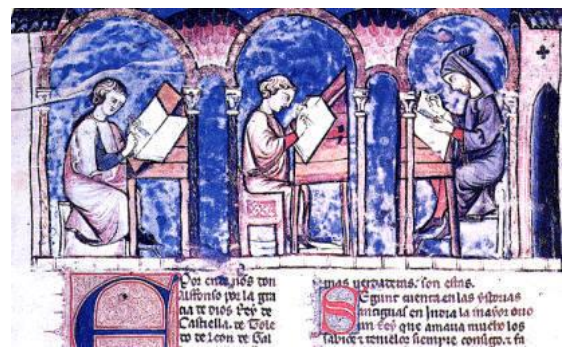 Por ende nos don
Alffonso por la gra
cia de dios Rey de
Castiella. de Tole
to de leon de Gal
mas uerdaderas. son estas.
Segunt cuenta en las ystorias
antiguas en India la mayor ouo
un Rey que amaua mucho los
sabios & tenielos siempre consigo. & fa